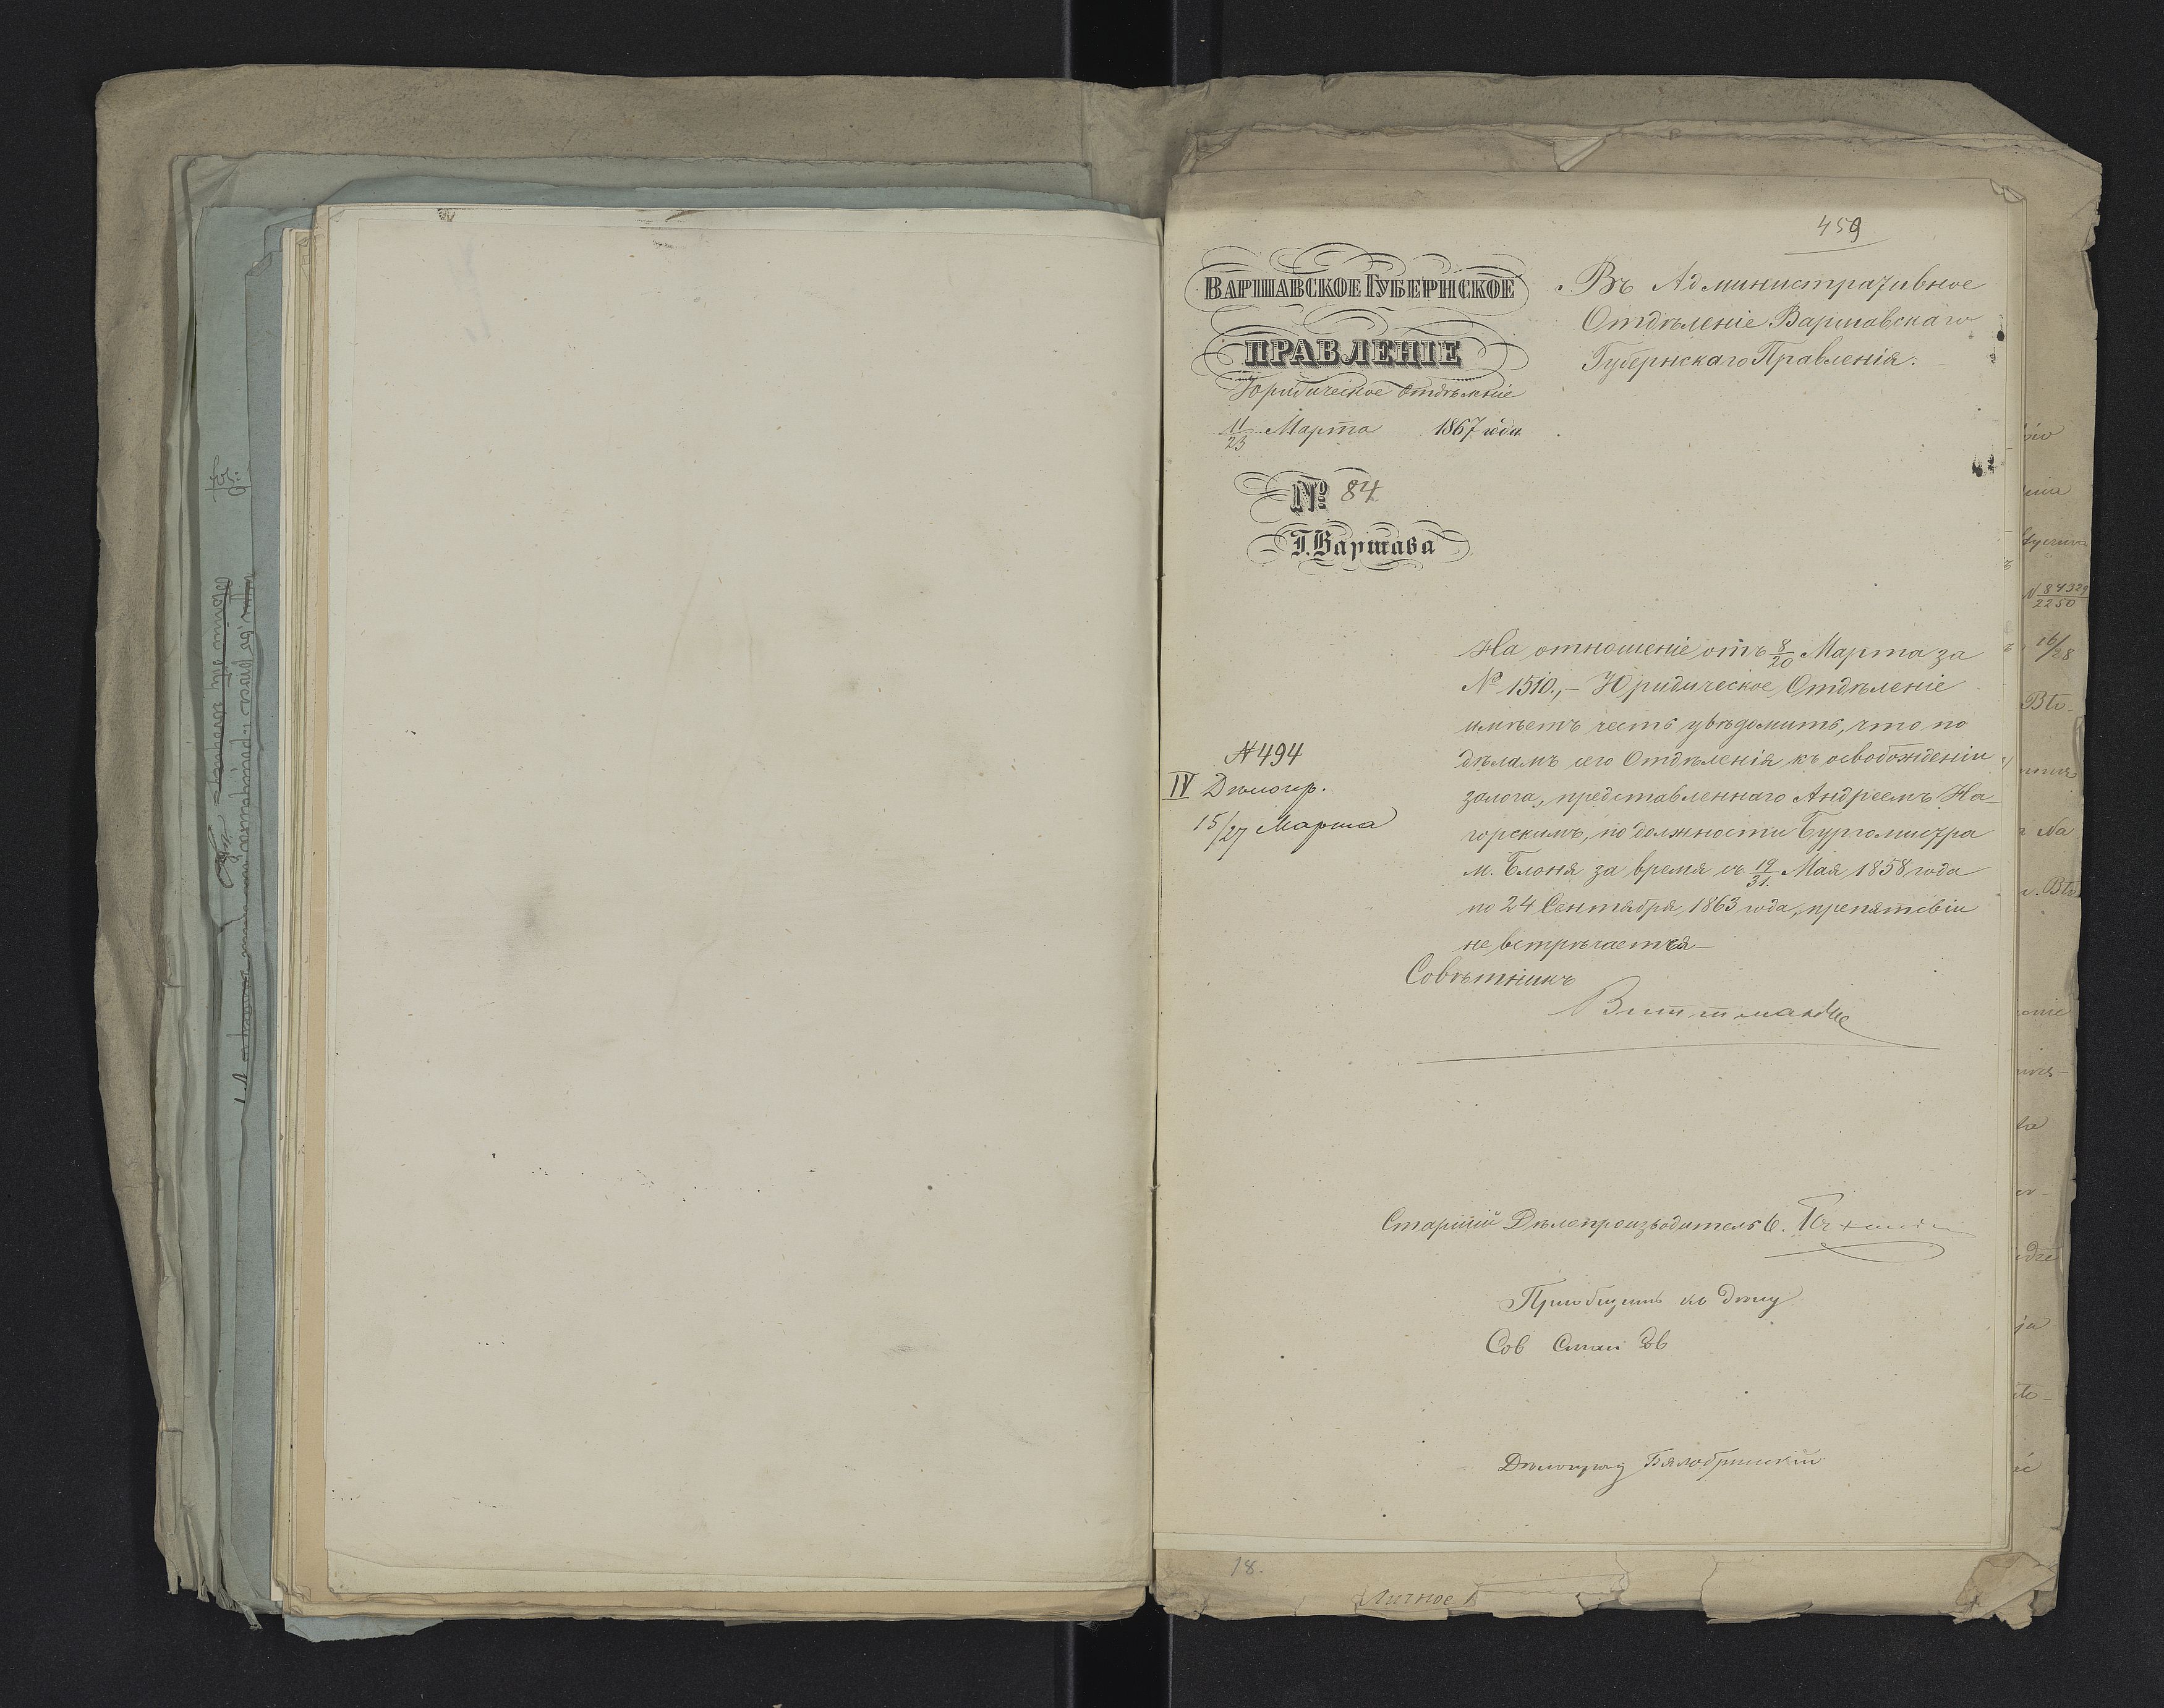 459
ВАРШАВСКОЕ ГУБЕРНСКОЕ
ПРАВЛЕНІЕ
Юридическое Отдѣленіе
11/23 Марта 1867 года
№ 84
Г. Варшава
Въ Административное
Отдѣленіе Варшавскаго
Губернскаго Правленія.
На отношеніе отъ 8/20 Марта за
№ 1510, – Юридическое Отдѣленіе
имѣетъ честь увѣдомить, что по
дѣламъ сего Отдѣленія къ освобожденію
залога, представленнаго Андреемъ На-
горскимъ, по должности Бургомистра
м. Блоня за время съ 19/31 Мая 1858 года
по 24 Сентября 1863 года, препятствій
не встрѣчается –
N 494
IV Дѣлопр.
15/27 Марта
Совѣтникъ
Старшій Дѣлопроизводитель
Пріобщить къ дѣлу
Сов
18.
Личное
N 84329/2250
16/28